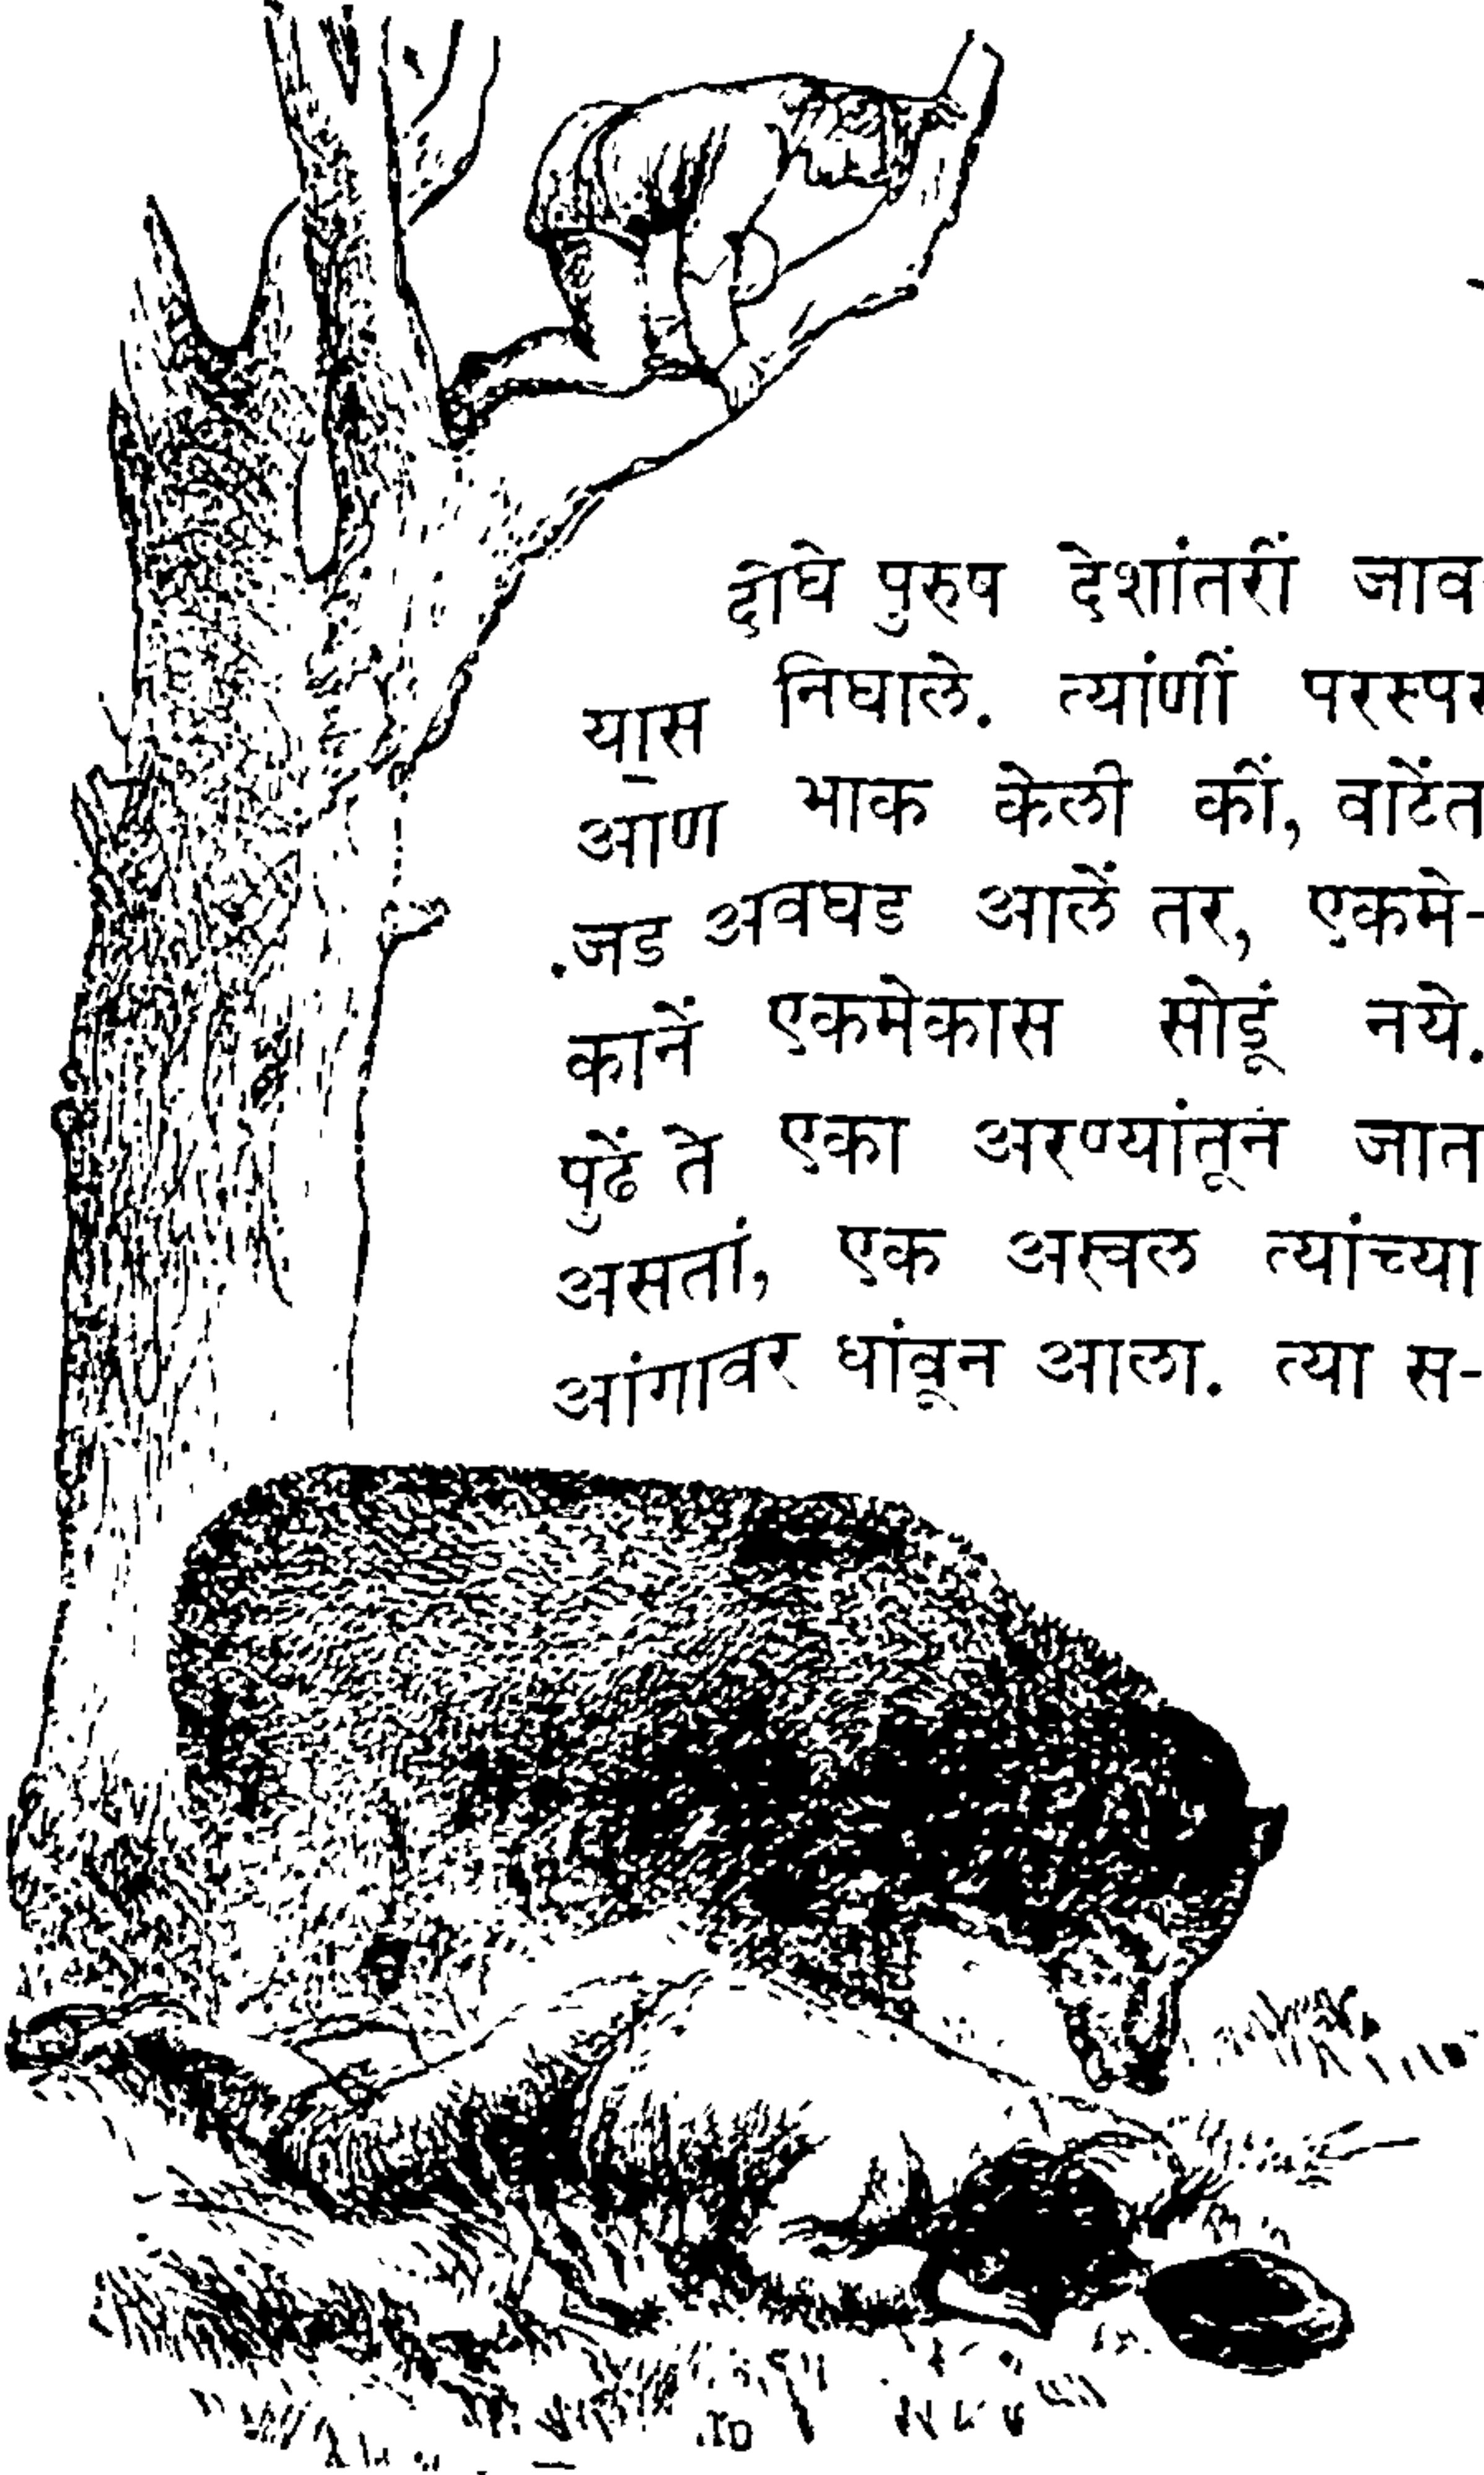 दोघे पुरुष देशांतरीं जाव-
यास निघाले. त्यांणीं परस्पर
आण भाक केली कीं, वाटेंत
जड अवघड आलें तर, एकमे-
कानें एकमेकास सोडूं नये.
पुढें ते एका अरण्यांतून जात
असतां, एक अस्वल त्यांच्या
आंगावर धांवून आला. त्या स-